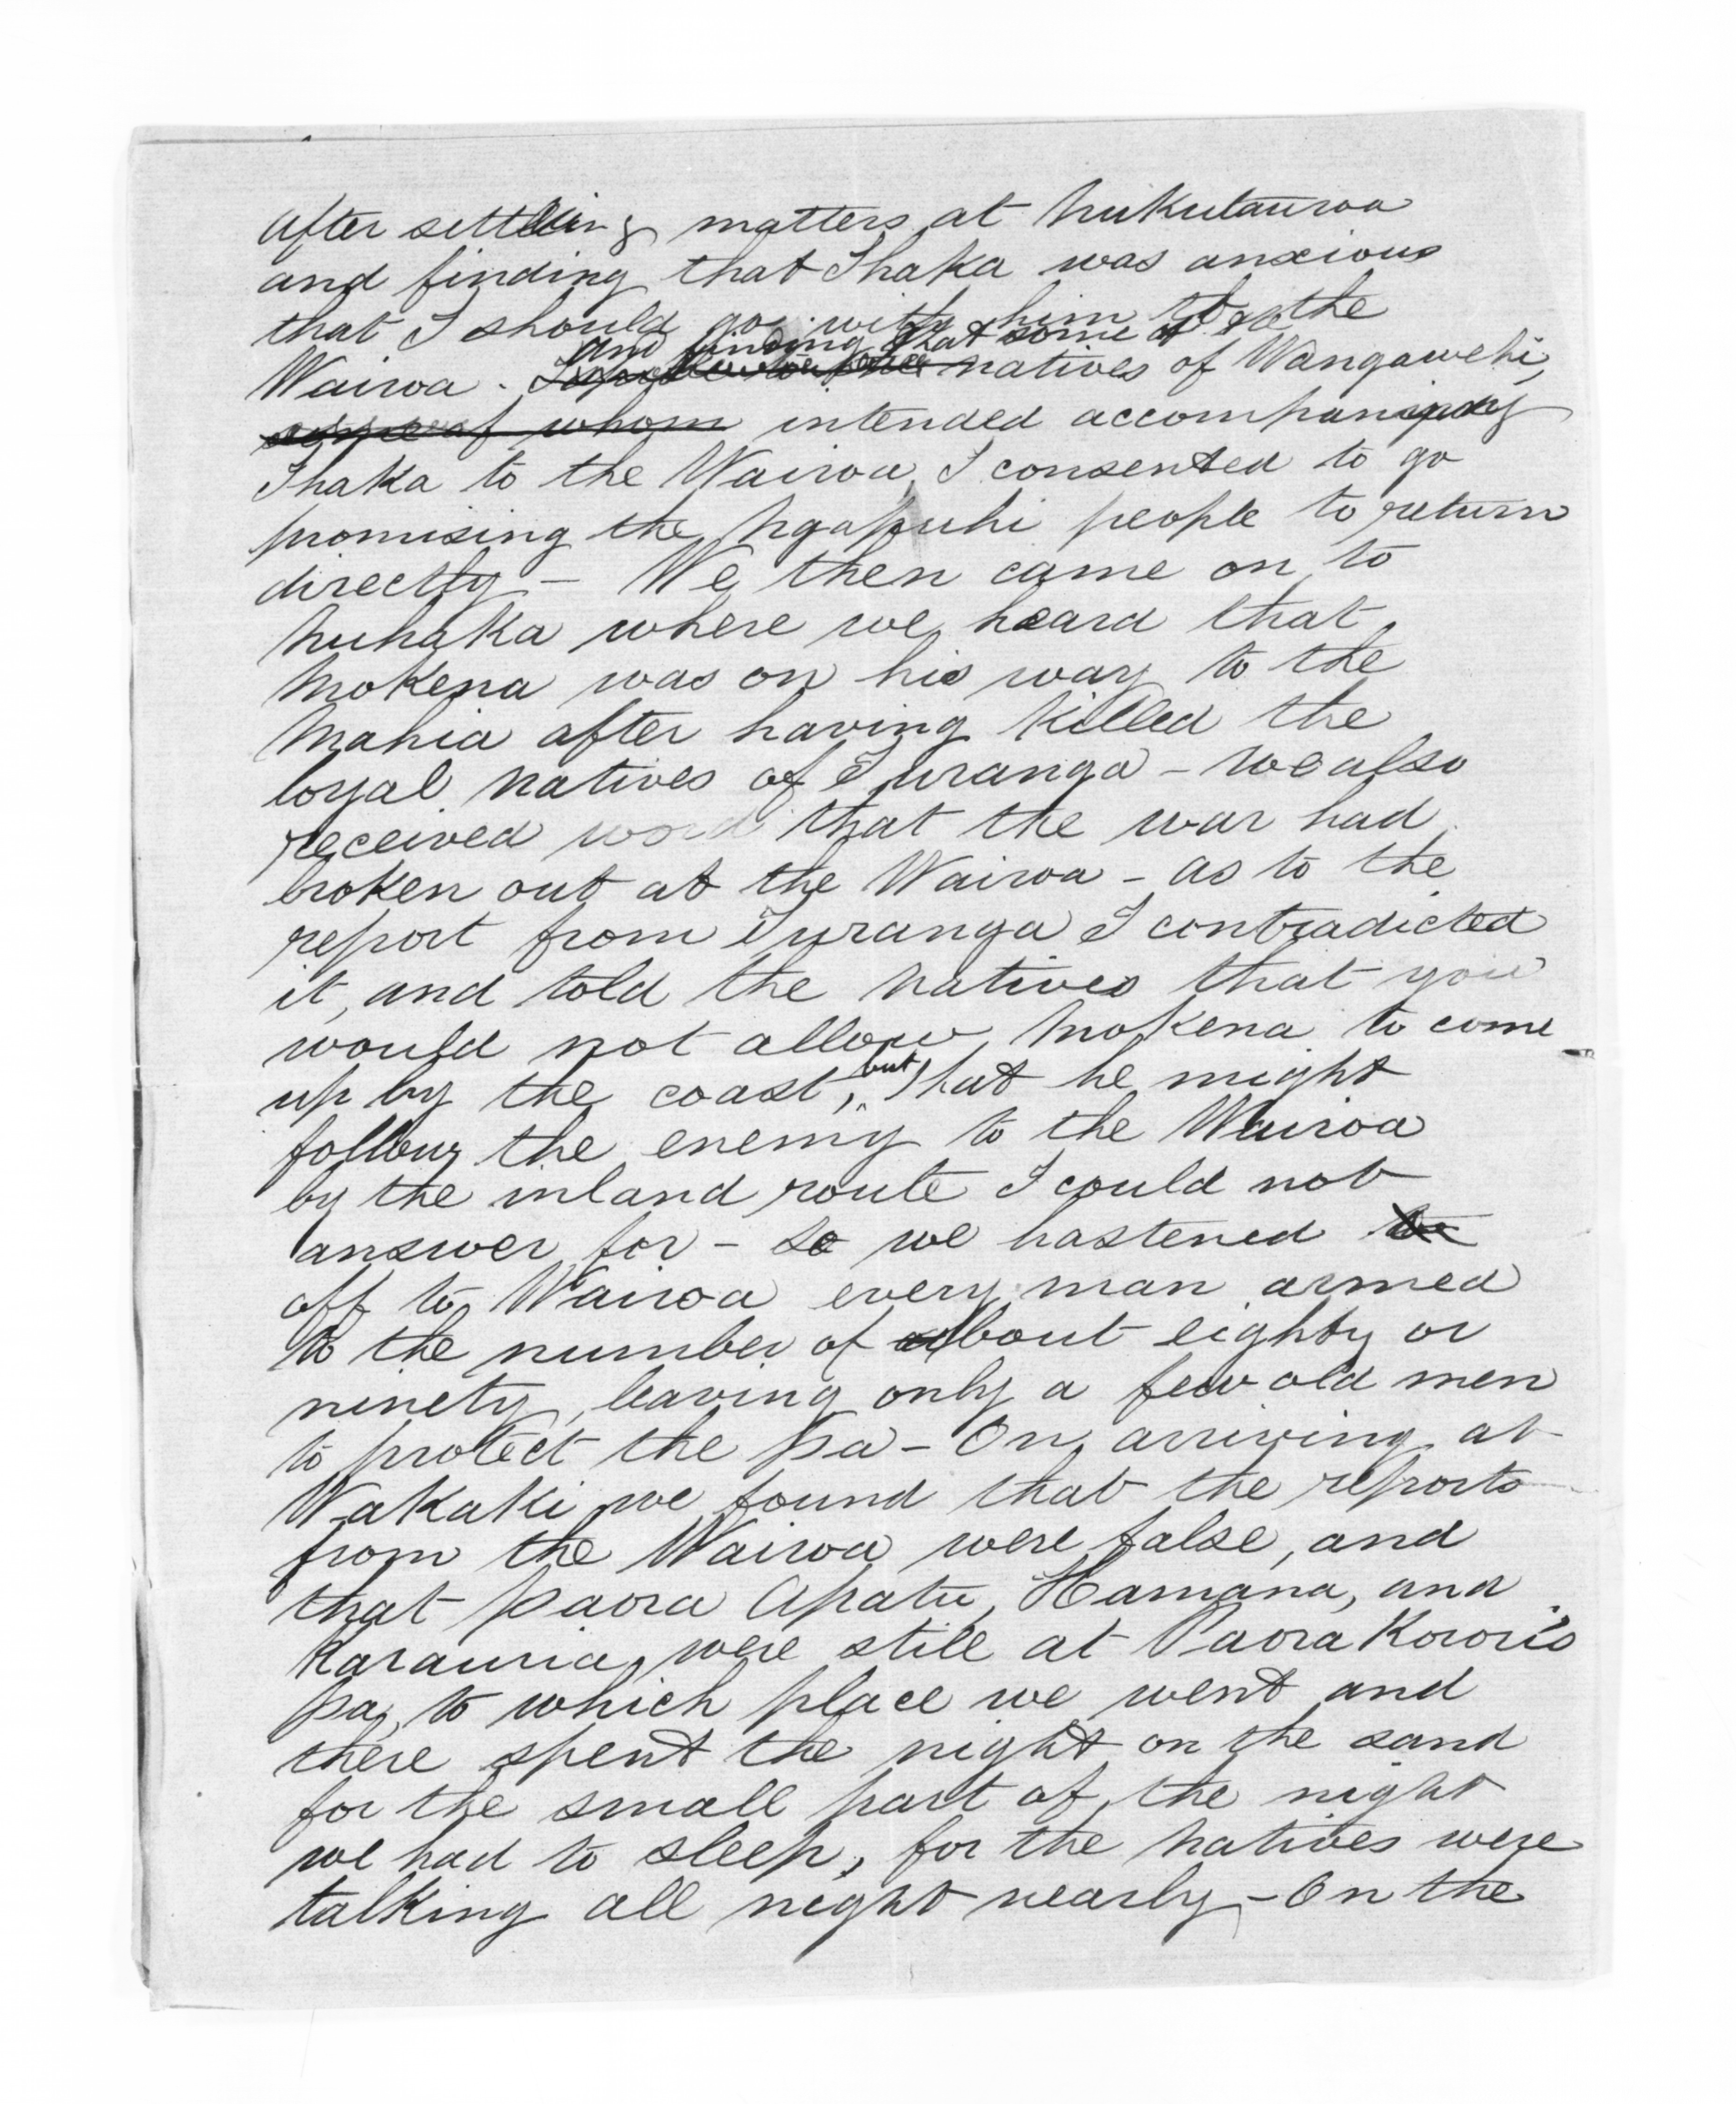 After settling matters at Nukutaurua
and finding that Ihaka was anxious
that I should go with him to the
and finding that some of the
Wairoa. natives of Wangawehi,
some of whom intended accompanying
Ihaka to the Wairoa, I consented to go
promising the Ngapuhi people to return
directly – We then came on to
Nuhaka where we heard that
Mokena was on his way to the
Mahia after having killed the
loyal natives of Turanga – we also
received word that the war had
broken out at the Wairoa – as to the
report from Turanga I contradicted
it, and told the natives that you
would not allow Mokena to come
up by the coast, but that he might
follow the enemy to the Wairoa
by the inland route I could not
answer for – so we hastened to
off to Wairoa every man armed
to the number of about eighty or
ninety, leaving only a few old men
to protect the pa – On arriving at
Wakaki we found that the reports
from the Wairoa were false, and
that Paora Apatu, Hamana, and
Karauria, were still at Paora Kororis
pa, to which place we went and
there spent the night on the sand
for the small part of the night
we had to sleep, for the natives were
talking all night nearly – On the